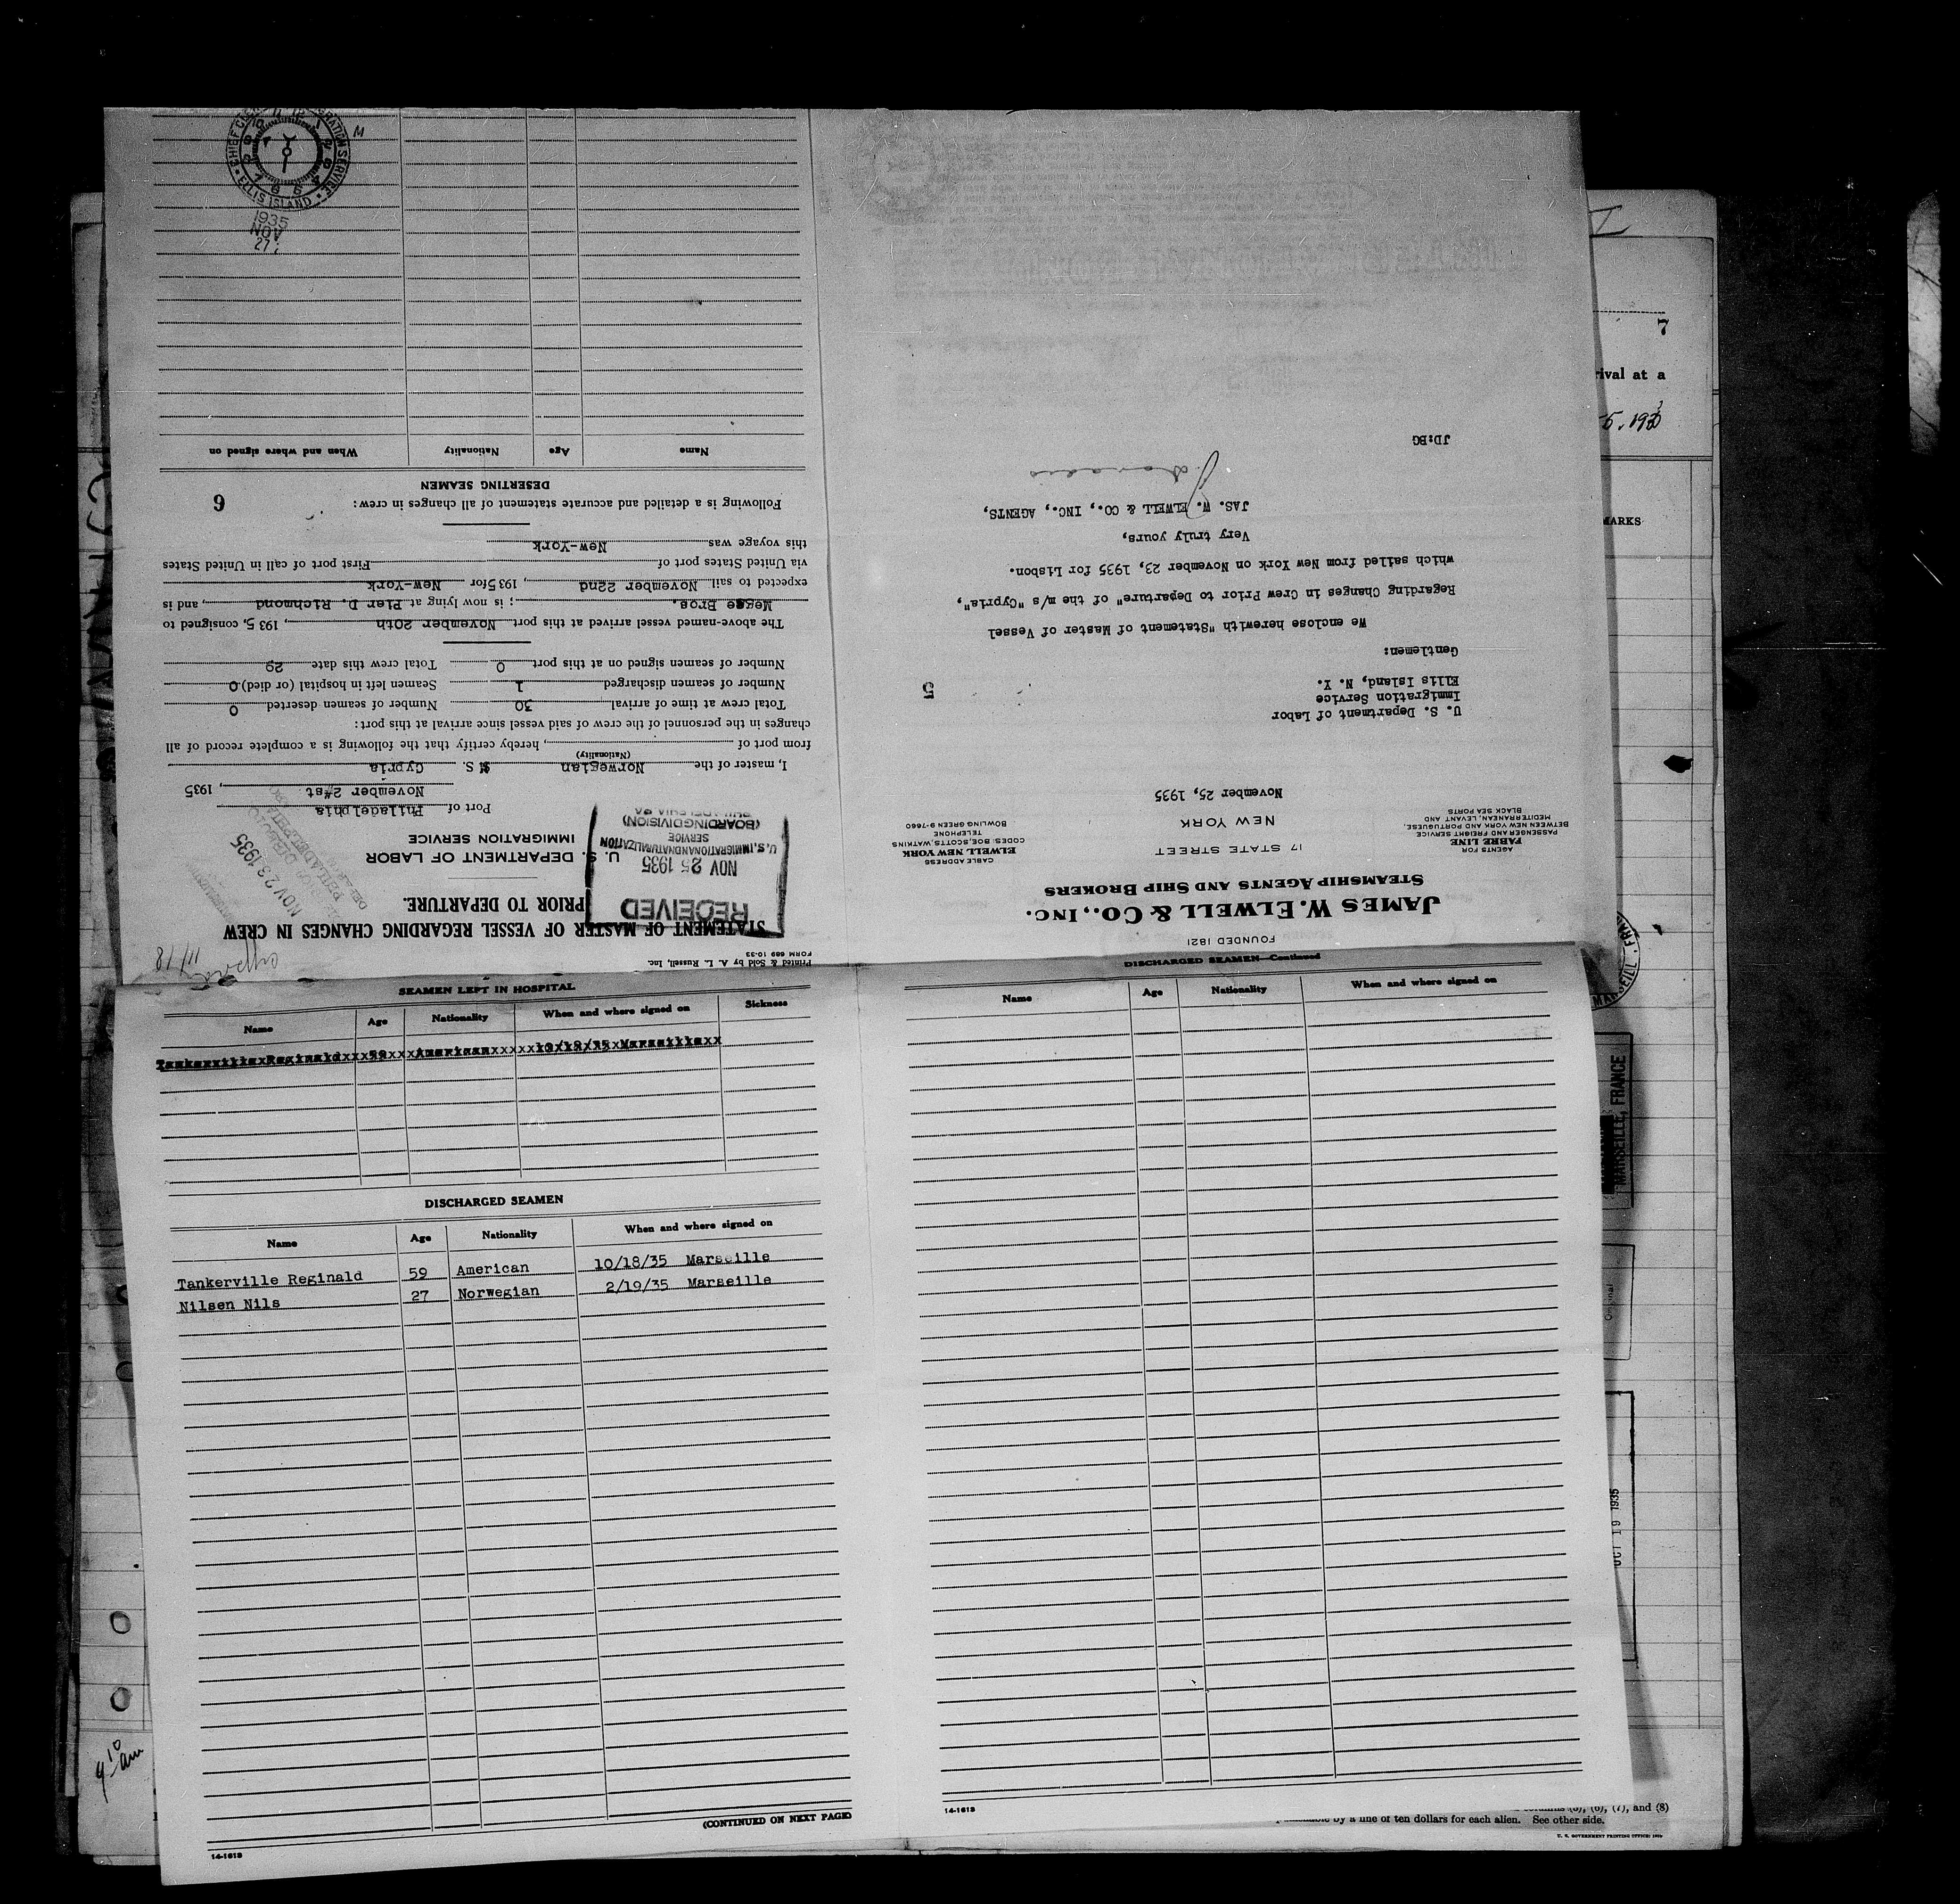 JAMES W. ELWELL & CO., INC.
STEAMSHIP AGENTS AND SHIP BROKERS
FOUNDED 1821
17 STATE STREET
NEW YORK
AGENTS FOR
FABRE LINE
PASSENGER AND FREIGHT SERVICE
BETWEEN NEW YORK AND PORTUGUESE,
MEDITERRANEAN, LEVANT AND
BLACK SEA PORTS
CABLE ADDRESS
ELWELL NEW YORK
CODES: BOE, SCOTTS, WATKINS
TELEPHONE
BOWLING GREEN 9-7660
November 25, 1935
U. S. Department of Labor
Immigration Service
Ellis Island, N. Y.
5
Gentlemen:
We enclose herewith "Statement of Master of Vessel
Regarding Changes in Crew Prior to Departure" of the m/s "Cypria",
which sailed from New York on November 23, 1935 for Lisbon.
Very truly yours,
JAS. W. ELWELL & CO., INC., AGENTS,
JD:BG
Printed & Sold by A. L. Russell, Inc.
FORM 689 10-33
11/18
STATEMENT OF MASTER OF VESSEL REGARDING CHANGES IN CREW
PRIOR TO DEPARTURE.
RECEIVED
NOV 25 1935
U.S. IMMIGRATION AND NATURALIZATION
SERVICE
(BOARDING DIVISION)
NOV 23 1935
U. S. DEPARTMENT OF LABOR
IMMIGRATION SERVICE
Port of Philadelphia
November 2#st, 1935
I, master of the Norwegian M S. Cypria
(Nationality)
from port of , hereby certify that the following is a complete record of all
changes in the personnel of the crew of said vessel since arrival at this port:
Total crew at time of arrival 30 Number of seamen deserted 0
Number of seamen discharged 1 Seamen left in hospital (or died) 0
Number of seamen signed on at this port 0 Total crew this date 29
The above-named vessel arrived at this port November 20th, 1935, consigned to
Megee Bros. ; is now lying at Pier D. Richmond, and is
expected to sail November 22nd, 1935 for New-York
via United States port of First port of call in United States
this voyage was New-York
Following is a detailed and accurate statement of all changes in crew:
6
DESERTING SEAMEN
Name Age Nationality When and where signed on
CHIEF
ELLIS ISLAND
1935
NOV
27
M
SEAMEN LEFT IN HOSPITAL
Name Age Nationality When and where signed on Sickness
Tankerville Reginald 59 American 10/18/35 Marseille
DISCHARGED SEAMEN
Name Age Nationality When and where signed on
Tankerville Reginald 59 American 10/18/35 Marseille
Nilsen Nils 27 Norwegian 2/19/35 Marseille
(CONTINUED ON NEXT PAGE)
14-1613
DISCHARGED SEAMEN—Continued
Name Age Nationality When and where signed on
14-1613
7
rival at a
MARKS
MARSEILLE, FRANCE
Original
OCT 19 1935
(6), (7), and (8)
by a fine of ten dollars for each alien. See other side.
9 10 am